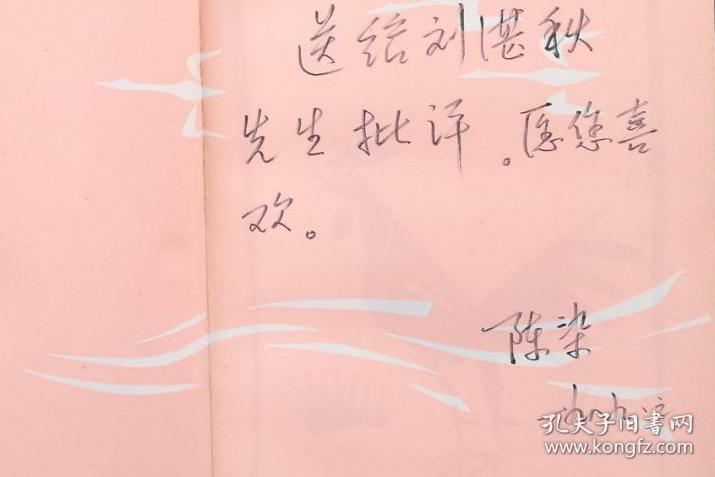 送给刘湛秋
先生批评。愿您喜
欢。
陈染
孔夫子旧书网
www.kongfz.com